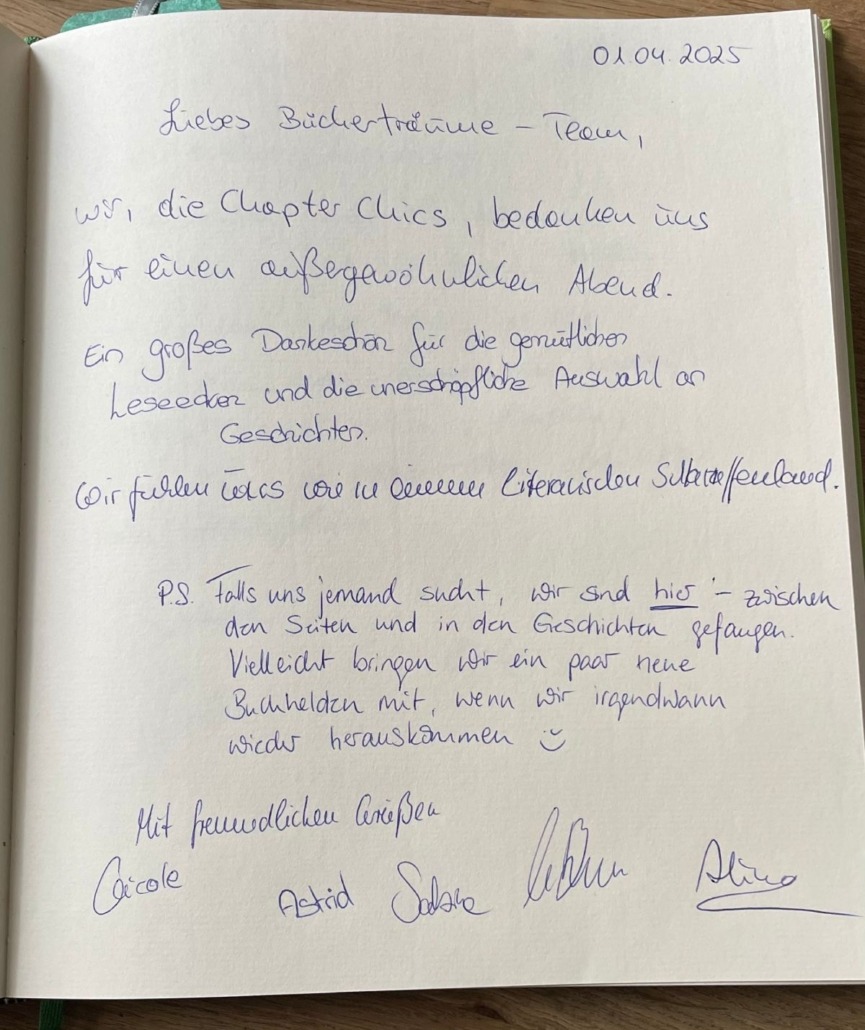 01.04.2025
Liebes Bücherträume - Team,
wir, die Chapter Chics, bedanken uns
für einen außergewöhnlichen Abend.
Ein großes Dankeschön für die gemütlichen
Leseecken und die unerschöpfliche Auswahl an
Geschichten.
Wir fühlen uns wie in einem literarischen Schlaraffenland.
P.S. Falls uns jemand sucht, wir sind hier - zwischen
den Seiten und in den Geschichten gefangen.
Vielleicht bringen wir ein paar neue
Buchhelden mit, wenn wir irgendwann
wieder herauskommen
Mit freundlichen Grüßen
Astrid